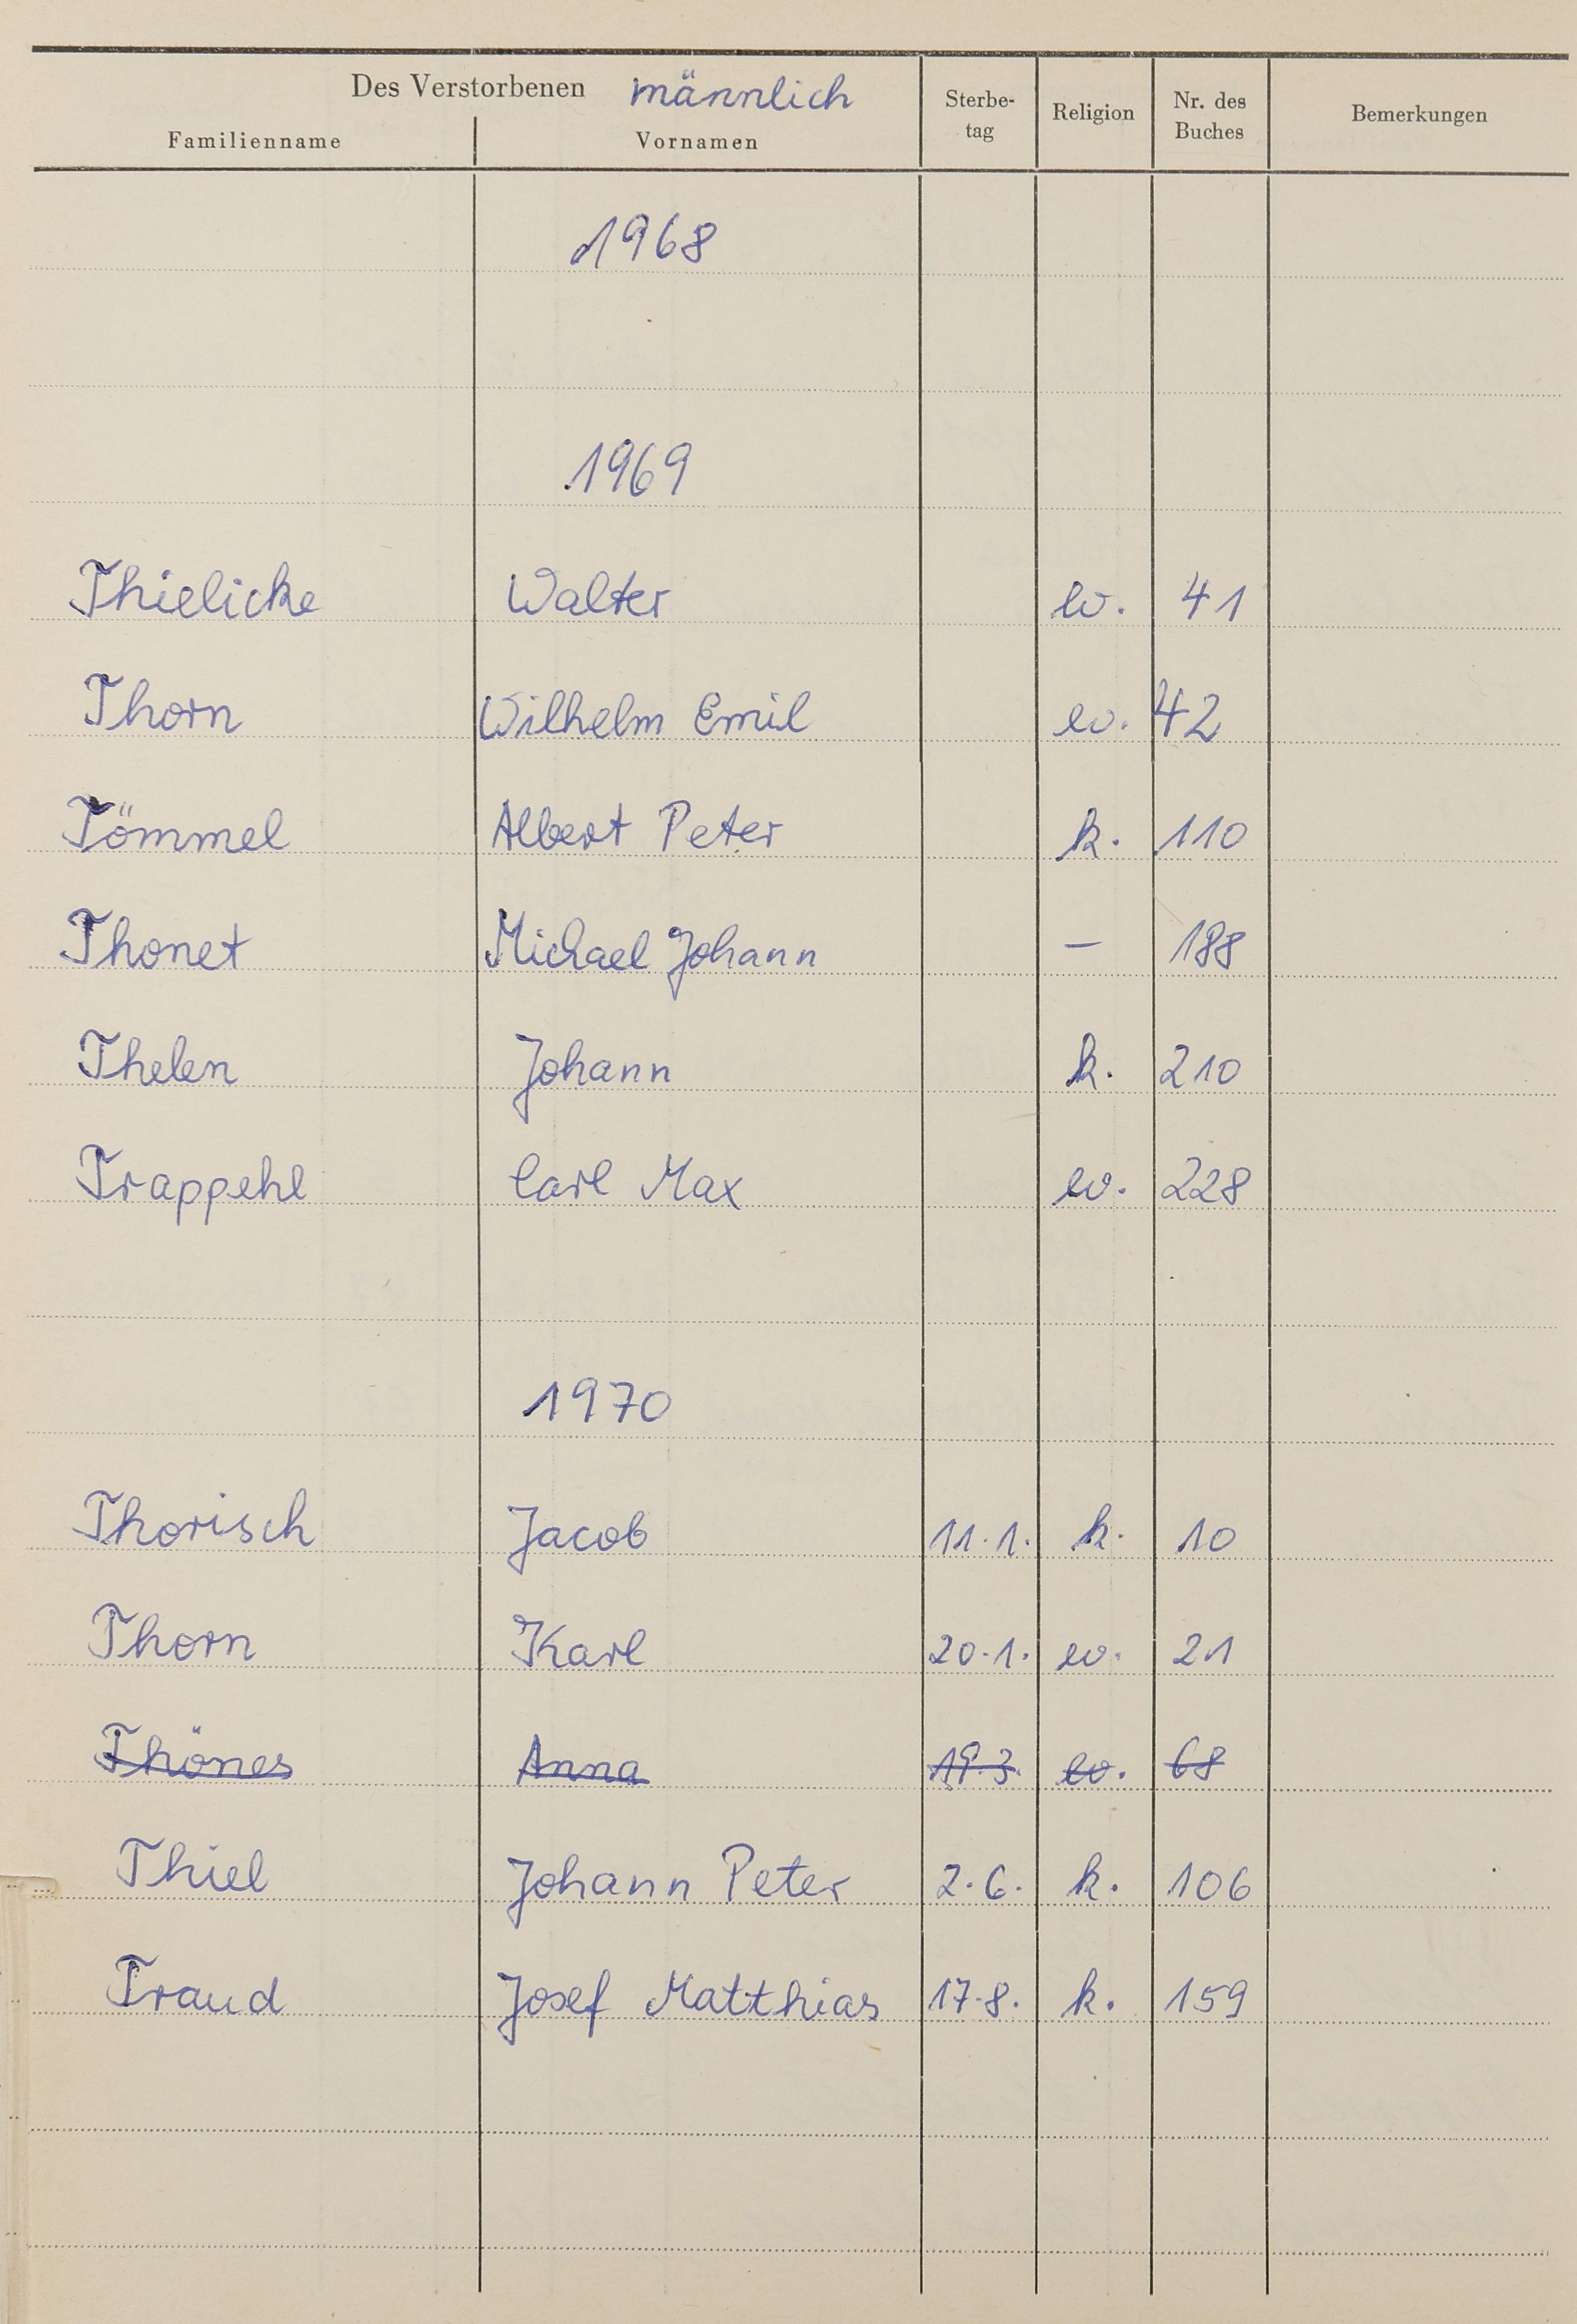 Des Verstorbenen männlich
Familienname Vornamen Sterbe-tag Religion Nr. des Buches Bemerkungen
1968
1969
Thielicke Walter ev. 41
Thorn Wilhelm Emil ev. 42
Tömmel Albert Peter k. 110
Thonet Michael Johann — 188
Thelen Johann k. 210
Trappehl Carl Max ev. 228
1970
Thorisch Jacob 11.1. k. 10
Thorn Karl 20.1. ev. 21
Thönes Anna 19.3. ev. 68
Thiel Johann Peter 2.6. k. 106
Traud Josef Matthias 17.8. k. 159